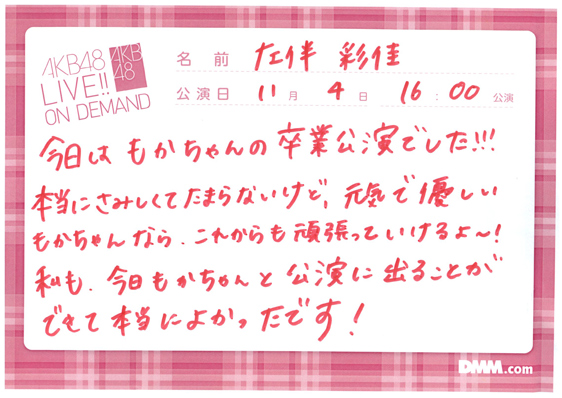 AKB48
LIVE!!
ON DEMAND
AKB
48
名前 左伴 彩佳
公演日 11月 4日 16:00公演
今日は もかちゃんの 卒業公演でした!!!
本当にさみしくてたまらないけど、元気で優しい
もかちゃんなら、これからも頑張っていけるよ〜!
私も、今日もかちゃんと公演に出ることが
できて本当によかったです!
DMM.com